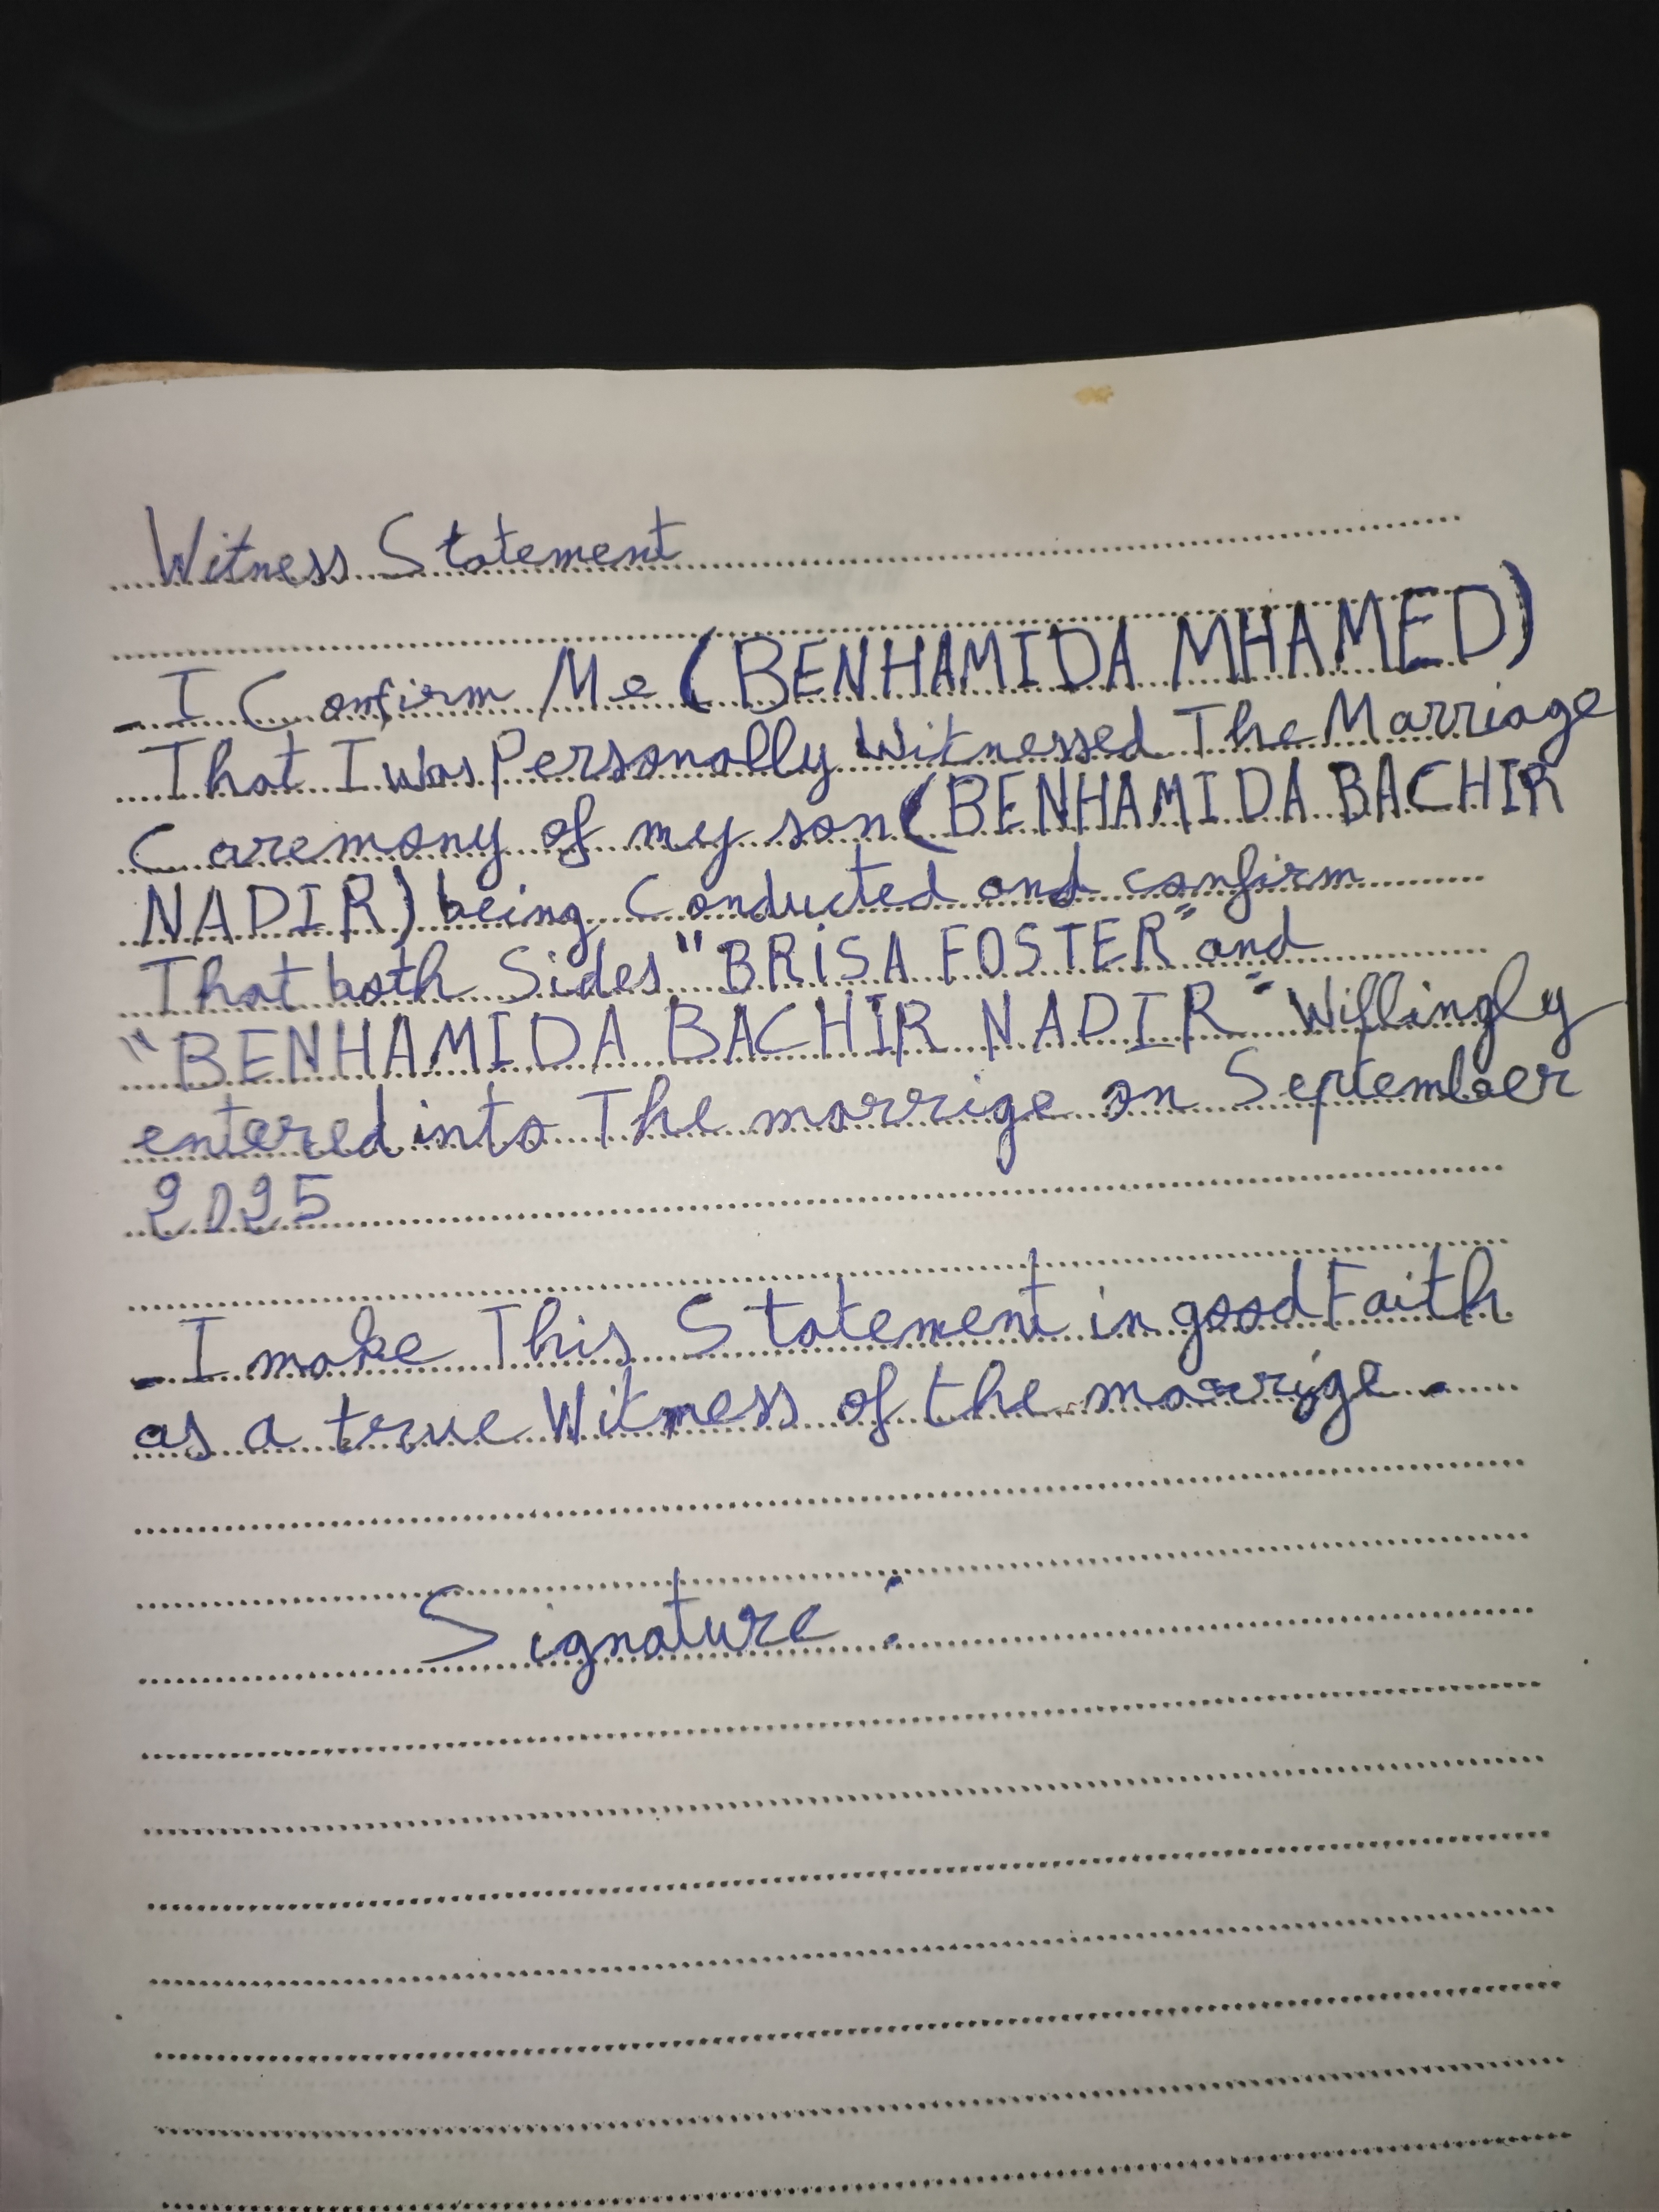 Witness Statement
- I Confirm Me (BENHAMIDA MHAMED)
That I was Personally Witnessed The Marriage
Caremony of my son (BENHAMIDA BACHIR
NADIR) being Conducted and confirm
That both Sides "BRiSA FOSTER" and
"BENHAMIDA BACHIR NADIR" Willingly
entered into The marrige on September
2025
- I make This Statement in good Faith
as a true Witness of the marrige.
Signature :